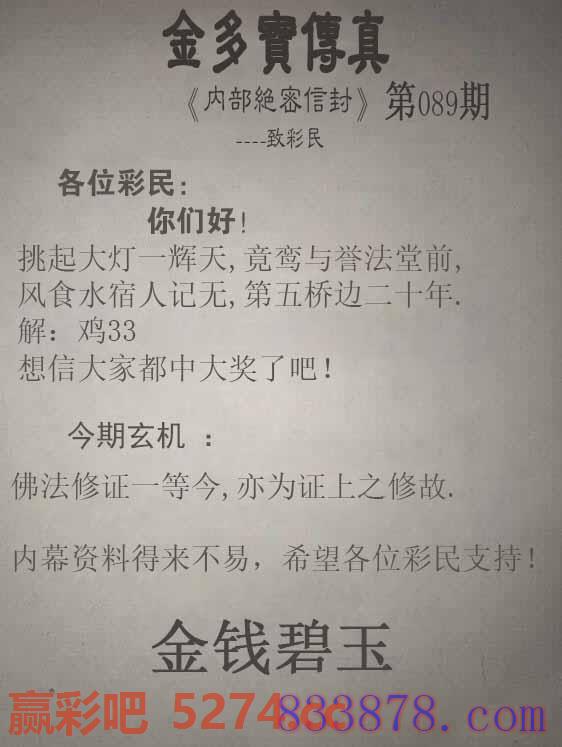 金多寶傳真
《内部絶密信封》第089期
----致彩民
各位彩民:
你们好!
挑起大灯一辉天,竟鸾与誉法堂前,
风食水宿人记无,第五桥边二十年.
解：鸡33
想信大家都中大奖了吧!
今期玄机 ：
佛法修证一等今,亦为证上之修故.
内幕资料得来不易，希望各位彩民支持!
金钱碧玉
赢彩吧 5274.cc
833878.com